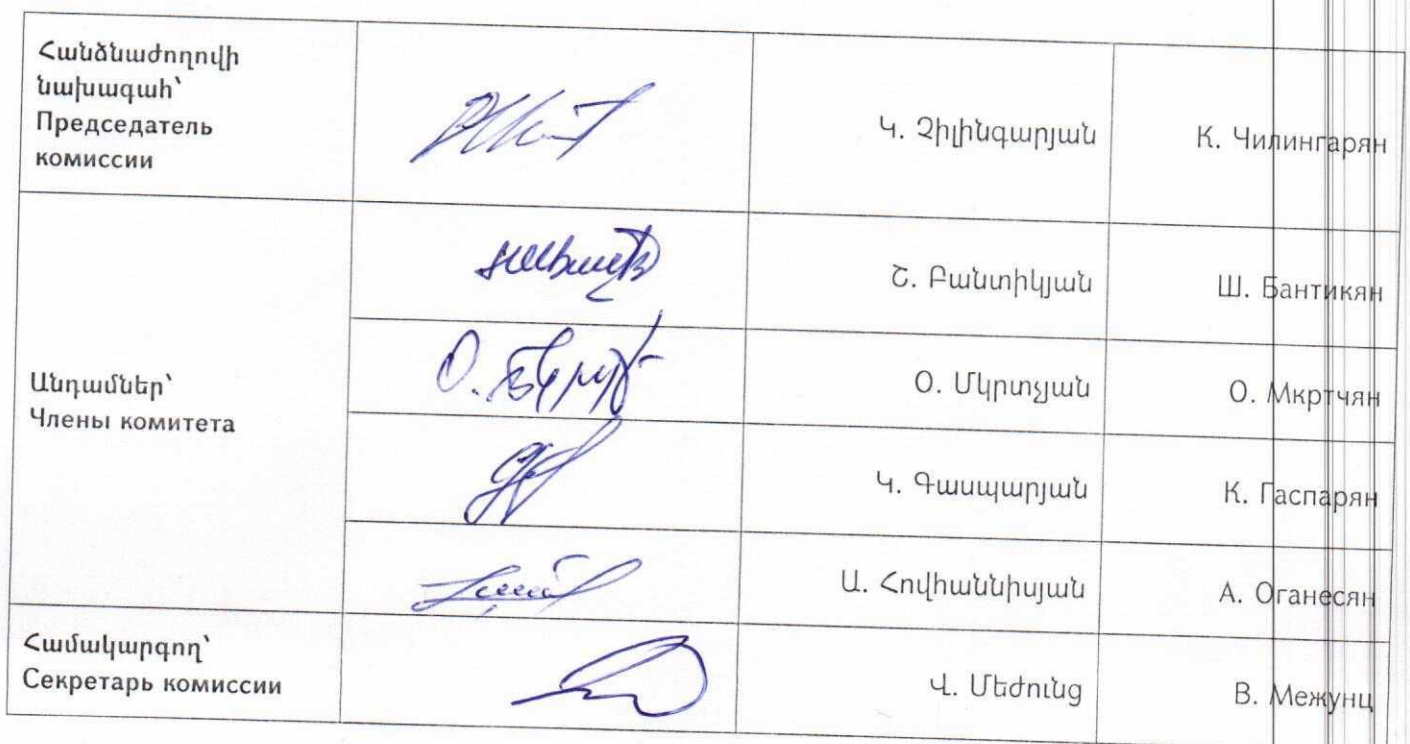 Հանձնաժողովի
նախագահ՝
Председатель
комиссии
Կ. Չիլինգարյան
К. Чилингарян
Անդամներ՝
Члены комитета
Շ. Բանտիկյան
Ш. Бантикян
Օ. Մկրտչյան
О. Мкртчян
Կ. Գասպարյան
К. Гаспарян
Ա. Հովհաննիսյան
А. Оганесян
Համակարգող՝
Секретарь комиссии
Վ. Մեժունց
В. Межунц